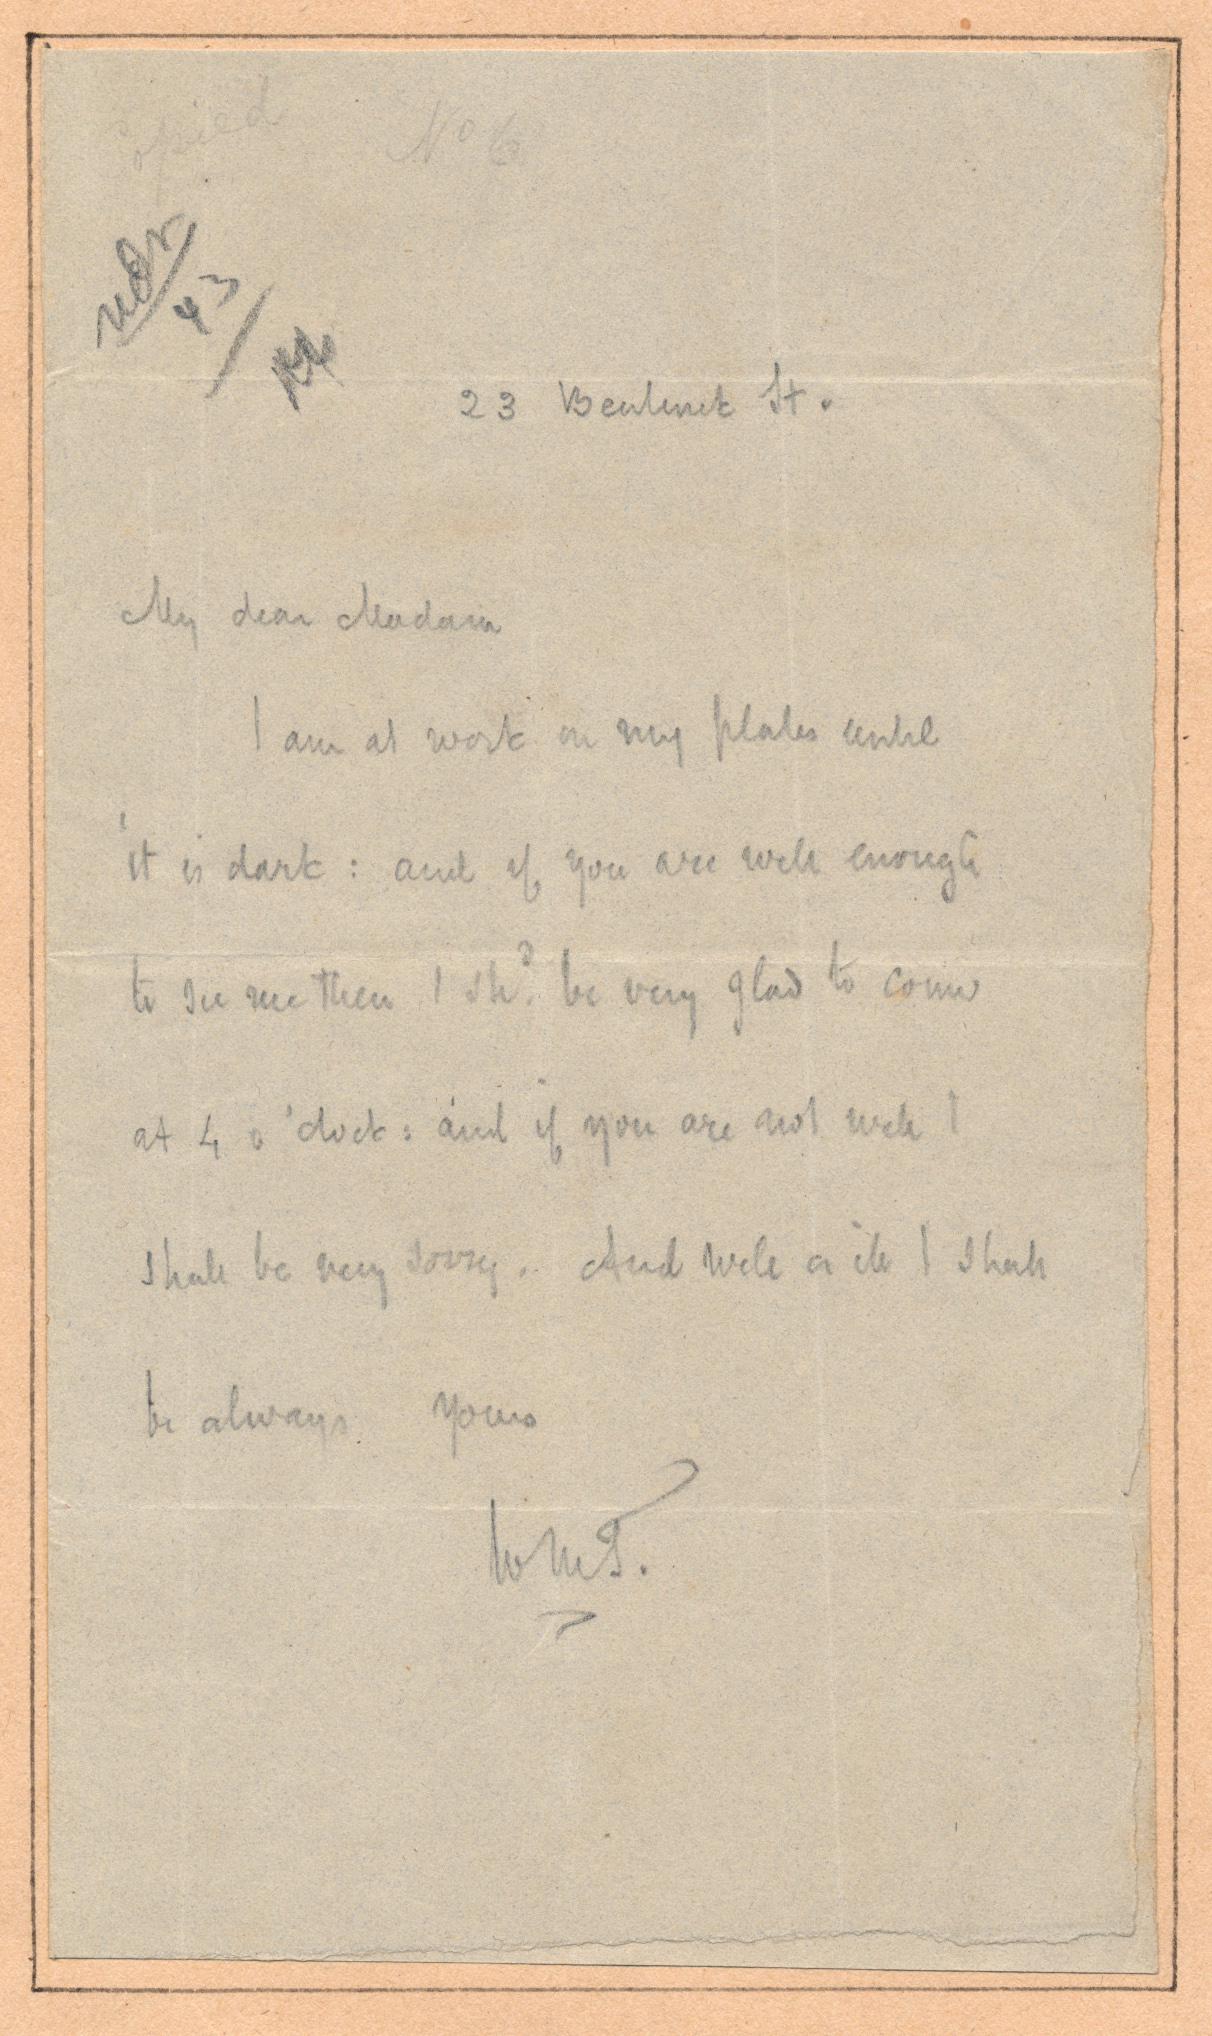 Copied No 6
43
23 Bentinck St.
My dear Madam
I am at work on my plates until
it is dark : and if you are well enough
to see me then I shd. be very glad to come
at 4 o'clock : and if you are not well I
shall be very sorry. And well or ill I shall
be always yours
WMT.